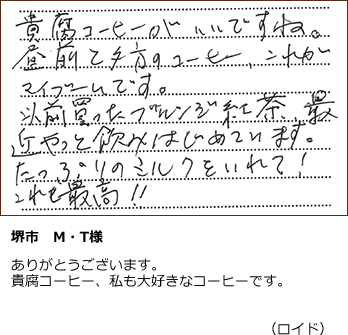 貴腐コーヒーがいいですね。
昼前と夕方のコーヒー、これが
マイブームです。
以前買ったブルンジ紅茶、最
近やっと飲みはじめています。
たっぷりのミルクをいれて!
これも最高!!
堺市 M・T様
ありがとうございます。
貴腐コーヒー、私も大好きなコーヒーです。
(ロイド)